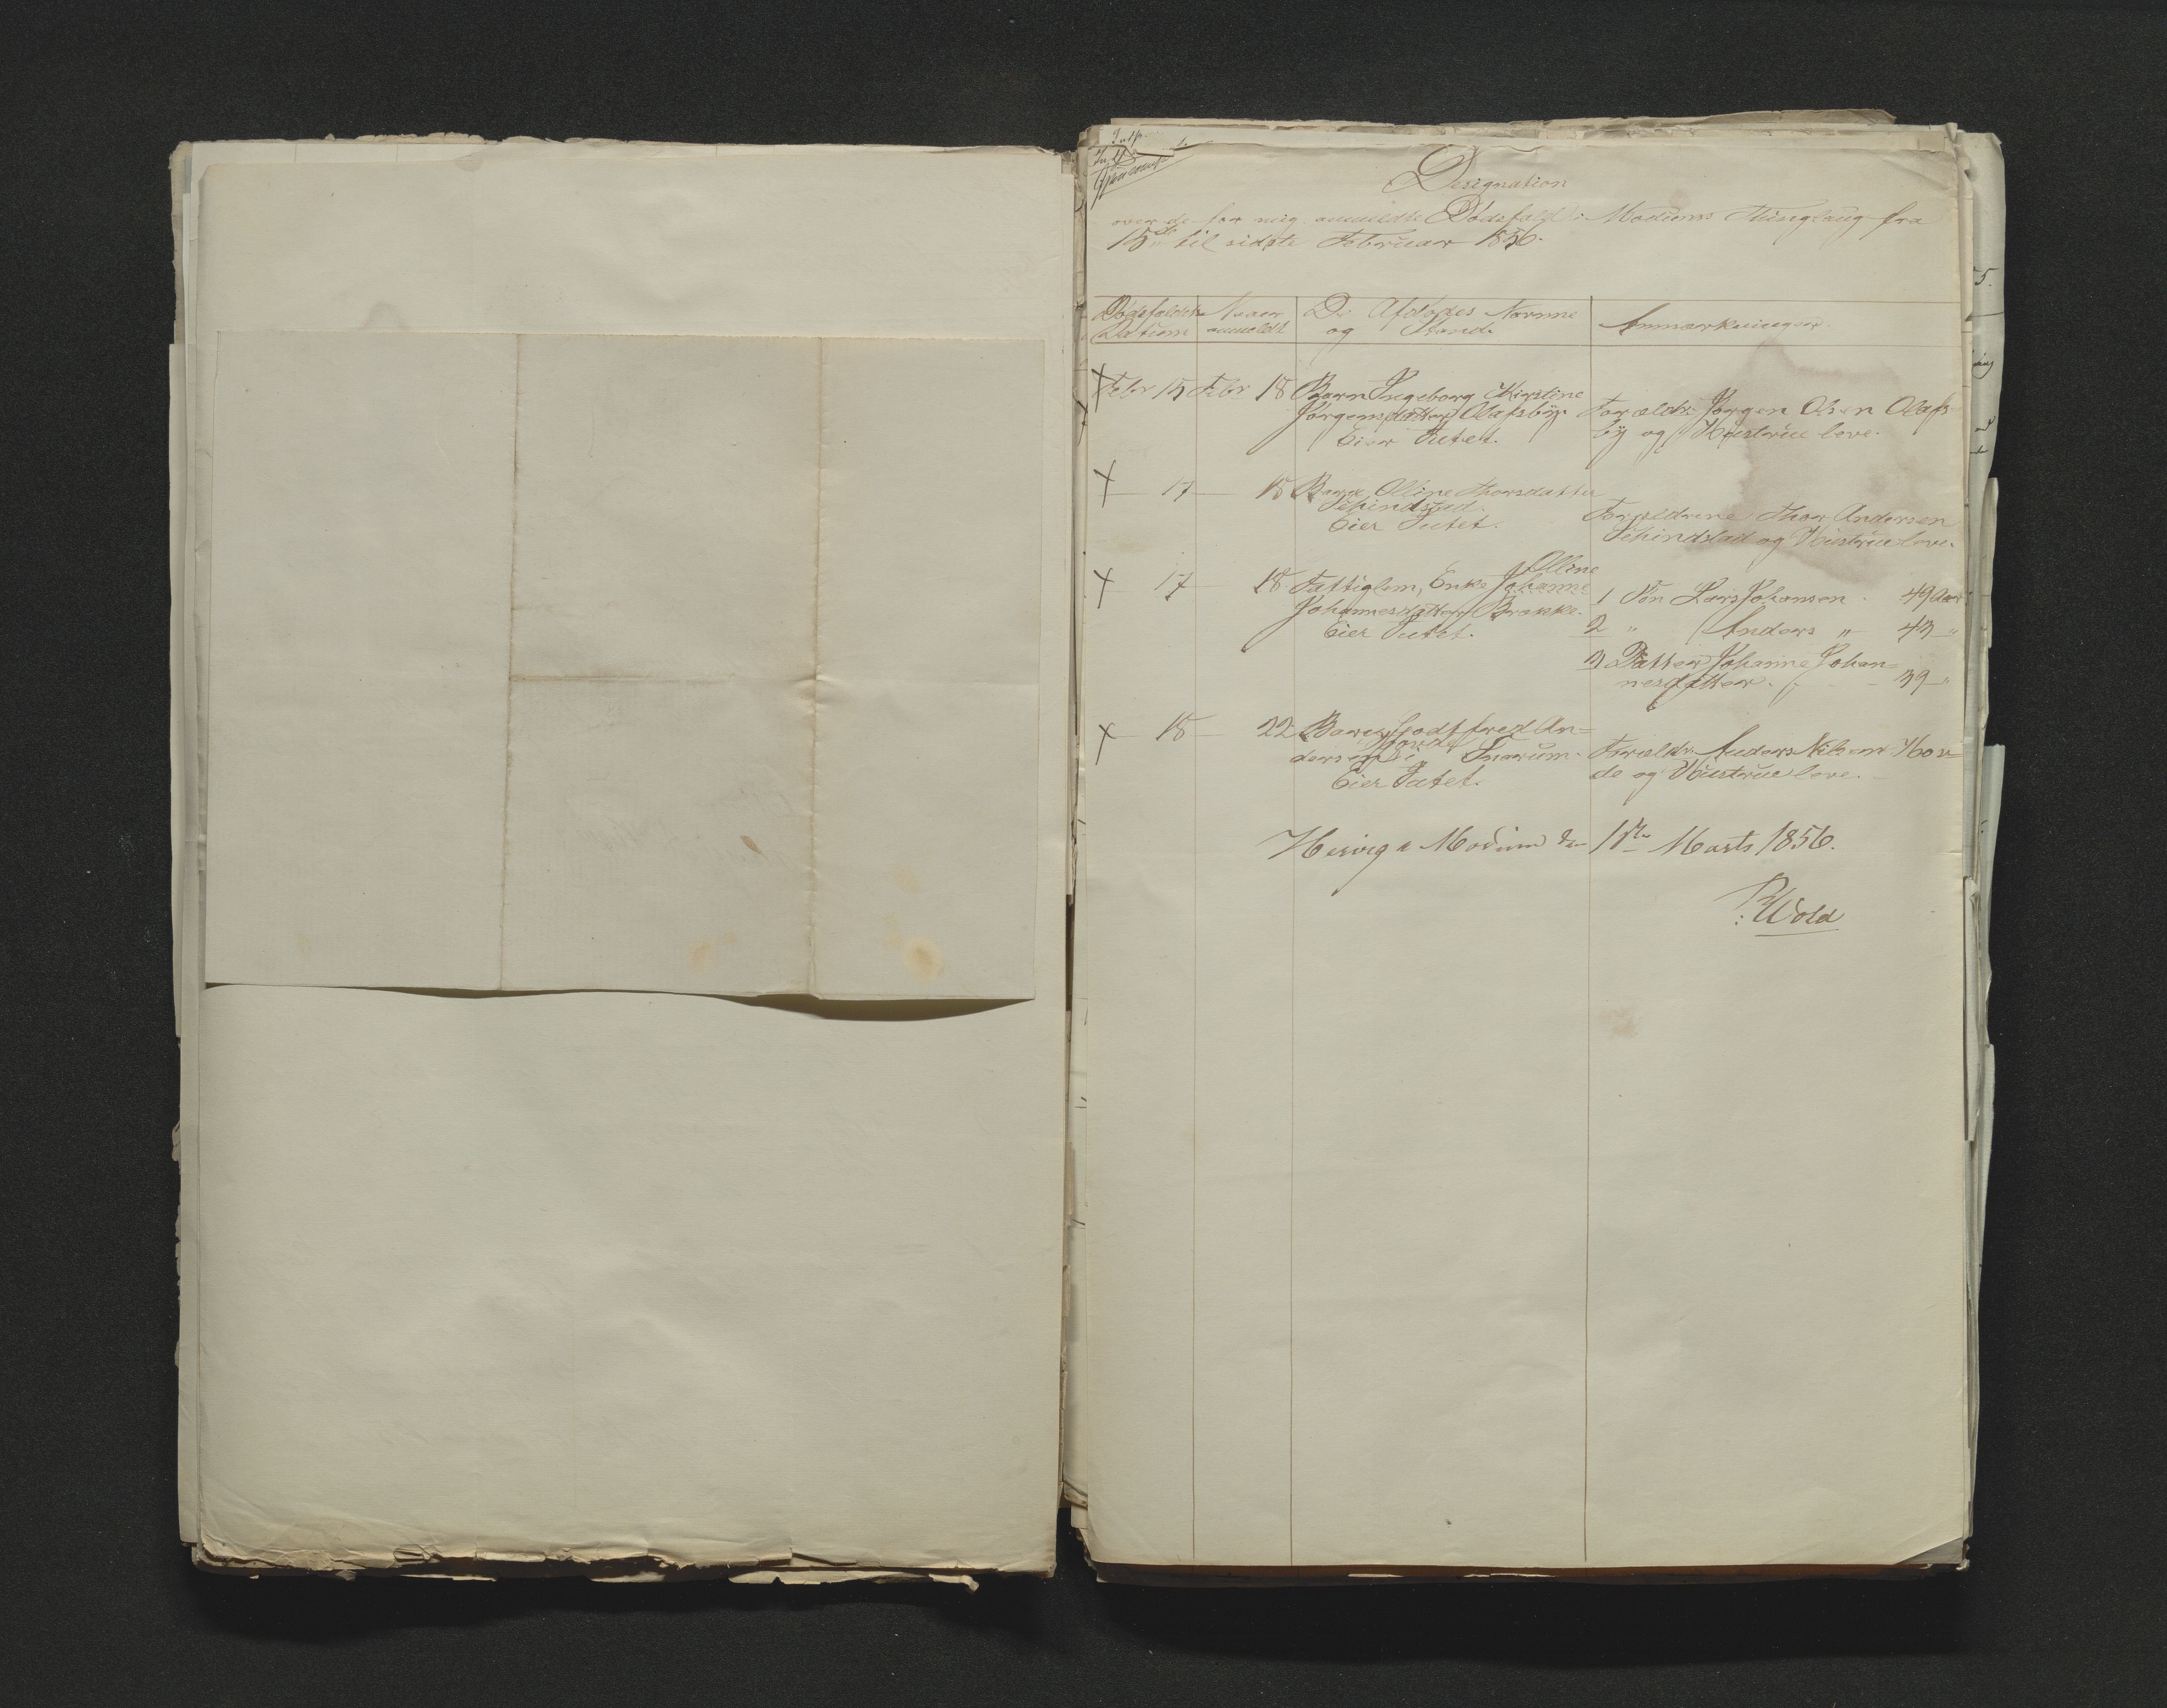 Designation
over de for mig anmeldte Dødsfald i Modums Thinglaug fra
15de til sidste Februar 1856.
Dødsfaldets Datum
Naar anmeldt
De Afdødes Navne og Stand.
Anmærkninger.
Febr 15 Febr 18 Barn Ingeborg Kirstine
Jørgensdatter Olafsby.
Eier Intet.
Forældr. Jørgen Olsen Olafs-
by og Hustrue leve.
17 18 Barn Olline Thorsdatter
Eier Intet.
Forældrene Thor Andersen
og Hustrue leve.
Olline
17 18 Fattiglem, Enke Johanne
Johannesdatter Brække.
Eier Intet.
1 Søn Lars Johansen 49 Aar
2 " Anders " 43 "
3 Datter Johanne Johan=
nesdatter. 39 "
18 22 Barn Godtfred An=
Horde
dersen i Snarum.
Eier Intet.
Forældr. Anders Nilsen Hor=
de og Hustrue leve.
Modum den 1ste Marts 1856.
Wold